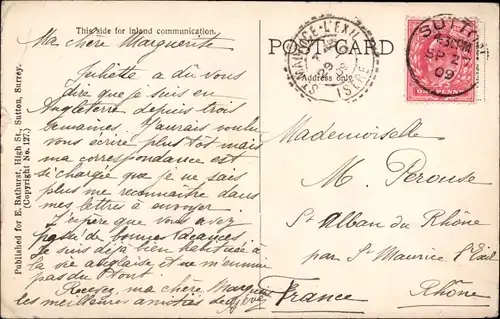 This side for inland communication.
POST CARD
Address only.
Ma chère Marguerite
Juliette a dû vous
dire que je suis en
Angleterre depuis trois
semaines. J'aurais voulu
vous écrire plus tôt mais
ma correspondance est
si chargée que je ne sais
plus me reconnaître dans
mes lettres à envoyer.
J'espère que vous avez
passé de bonnes vacances
Je suis déjà bien habituée à
la vie anglaise et ne m'ennuie
pas du tout.
Recevez, ma chère Marguerite
les meilleures amitiés de
Published for E. Bathurst, High St., Sutton, Surrey.
(Copyright No. 127.)
ST MAURICE-L'EXIL
ISÈRE
SUTTON
SP 2
09
ONE PENNY
Mademoiselle
M. Perouse
St Alban du Rhône
par St Maurice l'Exil
Rhône
France